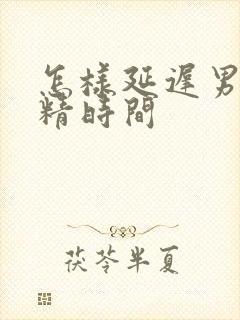 怎樣延遲男
精時間
茯苓半夏